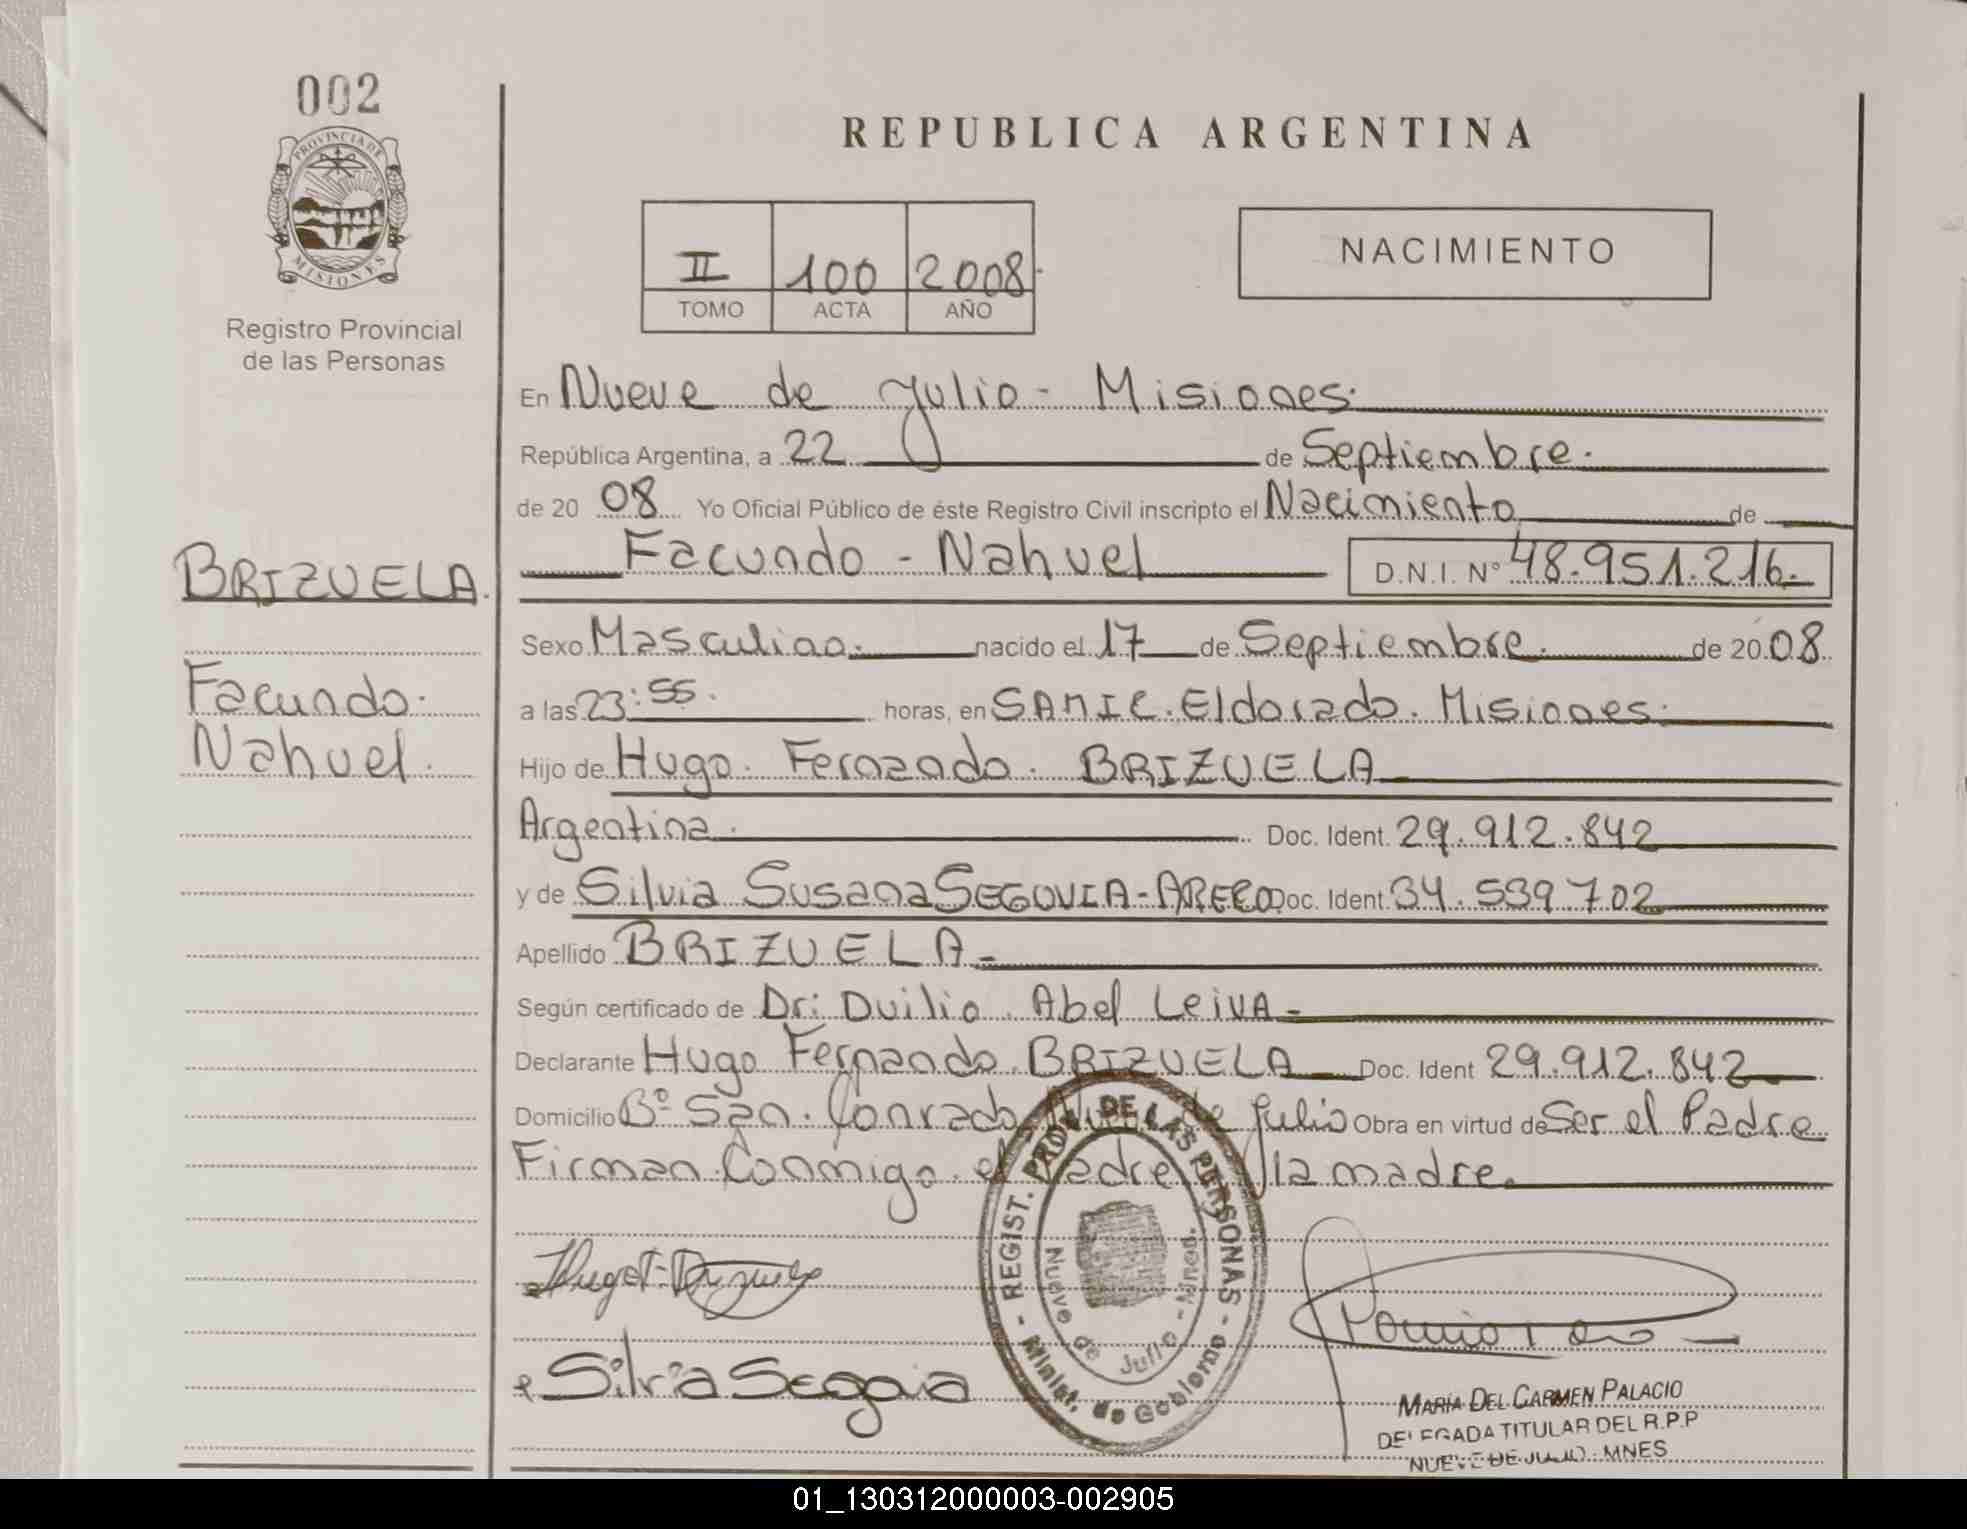 002
PROVINCIA DE
MISIONES
Registro Provincial
de las Personas
BRIZUELA.
Facundo.
Nahuel.
REPUBLICA ARGENTINA
II 100 2008
TOMO ACTA AÑO
NACIMIENTO
En Nueve de Julio - Misiones.
República Argentina, a 22 de Septiembre.
de 20 08 Yo Oficial Público de éste Registro Civil inscripto el Nacimiento de
Facundo - Nahuel D.N.I. Nº 48.951.216.
Sexo Masculino. nacido el 17 de Septiembre. de 20 08
a las 23:55. horas, en SAMIC. Eldorado. Misiones.
Hijo de Hugo. Fernando. BRIZUELA
Argentina. Doc. Ident. 29.912.842
y de Silvia Susana SEGOVIA - ARECO Doc. Ident. 34.539.702
Apellido BRIZUELA -
Según certificado de Dr: Duilio. Abel Leiva -
Declarante Hugo Fernando. BRIZUELA Doc. Ident 29.912.842
Domicilio Bº San. Conrado Nueve de Julio Obra en virtud de Ser el Padre
Firman Conmigo. el Padre y la madre.
REGIST. PROV. DE LAS PERSONAS
Nueve de Julio - Mnes.
Minist. de Gobierno
Silvia Segovia
MARÍA DEL CARMEN PALACIO
DELEGADA TITULAR DEL R.P.P
NUEVE DE JULIO - MNES
01_130312000003-002905